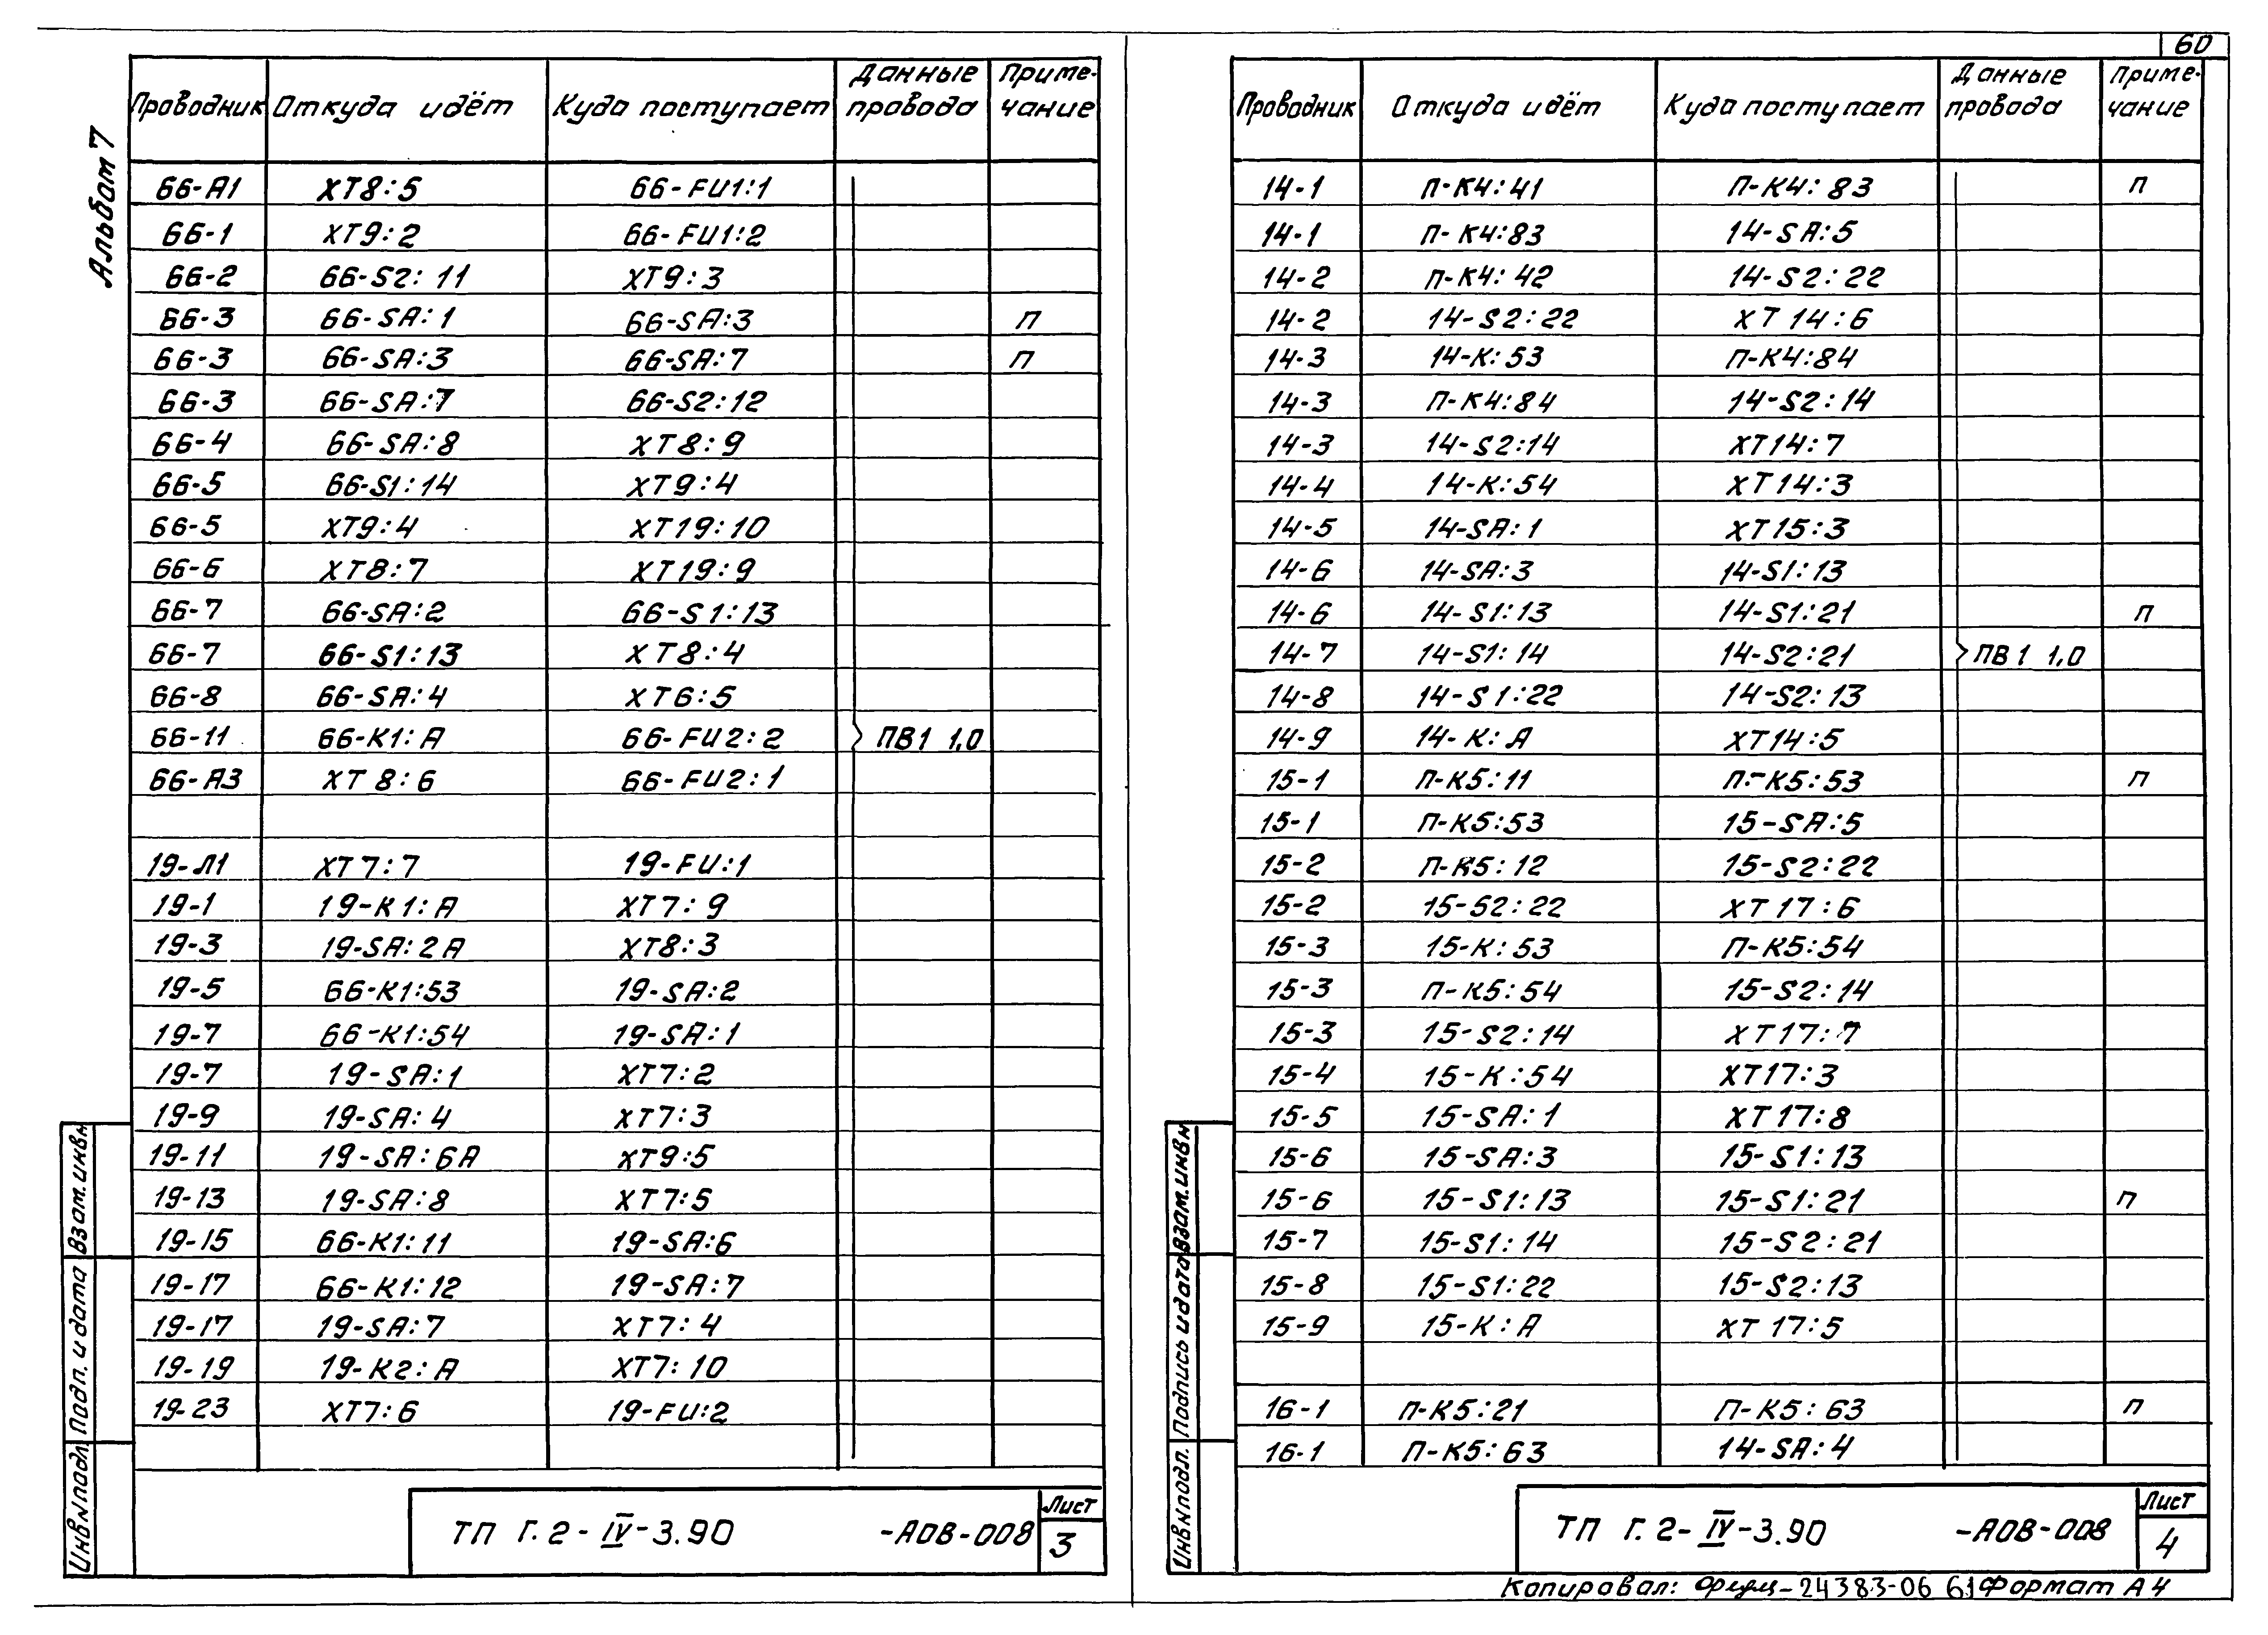 60
Альбом 7
Проводник Откуда идёт Куда поступает Данные провода Приме-чание
66-А1 ХТ8:5 66-FU1:1
66-1 ХТ9:2 66-FU1:2
66-2 66-S2:11 ХТ9:3
66-3 66-SA:1 66-SA:3 п
66-3 66-SA:3 66-SA:7 п
66-3 66-SA:7 66-S2:12
66-4 66-SA:8 ХТ8:9
66-5 66-S1:14 ХТ9:4
66-5 ХТ9:4 ХТ19:10
66-6 ХТ8:7 ХТ19:9
66-7 66-SA:2 66-S1:13
66-7 66-S1:13 ХТ8:4
66-8 66-SA:4 ХТ6:5
66-11 66-К1:А 66-FU2:2 ПВ1 1,0
66-А3 ХТ8:6 66-FU2:1
19-Л1 ХТ7:7 19-FU:1
19-1 19-К1:А ХТ7:9
19-3 19-SA:2А ХТ8:3
19-5 66-К1:53 19-SA:2
19-7 66-К1:54 19-SA:1
19-7 19-SA:1 ХТ7:2
19-9 19-SA:4 ХТ7:3
19-11 19-SA:6А ХТ9:5
19-13 19-SA:8 ХТ7:5
19-15 66-К1:11 19-SA:6
19-17 66-К1:12 19-SA:7
19-17 19-SA:7 ХТ7:4
19-19 19-К2:А ХТ7:10
19-23 ХТ7:6 19-FU:2
Взам.инв№
Подп. и дата
Инв№подл.
ТП Г.2-IV-3.90 -АОВ-008
Лист
3
Проводник Откуда идёт Куда поступает Данные провода Приме-чание
14-1 П-К4:41 П-К4:83 п
14-1 П-К4:83 14-SA:5
14-2 П-К4:42 14-S2:22
14-2 14-S2:22 ХТ14:6
14-3 14-К:53 П-К4:84
14-3 П-К4:84 14-S2:14
14-3 14-S2:14 ХТ14:7
14-4 14-К:54 ХТ14:3
14-5 14-SA:1 ХТ15:3
14-6 14-SA:3 14-S1:13
14-6 14-S1:13 14-S1:21 п
14-7 14-S1:14 14-S2:21 ПВ1 1,0
14-8 14-S1:22 14-S2:13
14-9 14-К:А ХТ14:5
15-1 П-К5:11 П-К5:53 п
15-1 П-К5:53 15-SA:5
15-2 П-К5:12 15-S2:22
15-2 15-S2:22 ХТ17:6
15-3 15-К:53 П-К5:54
15-3 П-К5:54 15-S2:14
15-3 15-S2:14 ХТ17:7
15-4 15-К:54 ХТ17:3
15-5 15-SA:1 ХТ17:8
15-6 15-SA:3 15-S1:13
15-6 15-S1:13 15-S1:21 п
15-7 15-S1:14 15-S2:21
15-8 15-S1:22 15-S2:13
15-9 15-К:А ХТ17:5
16-1 П-К5:21 П-К5:63 п
16-1 П-К5:63 14-SA:4
Взам.инв№
Подпись и дата
Инв№подл.
ТП Г.2-IV-3.90 -АОВ-008
Лист
4
Копировал: 24383-06 61 Формат А4